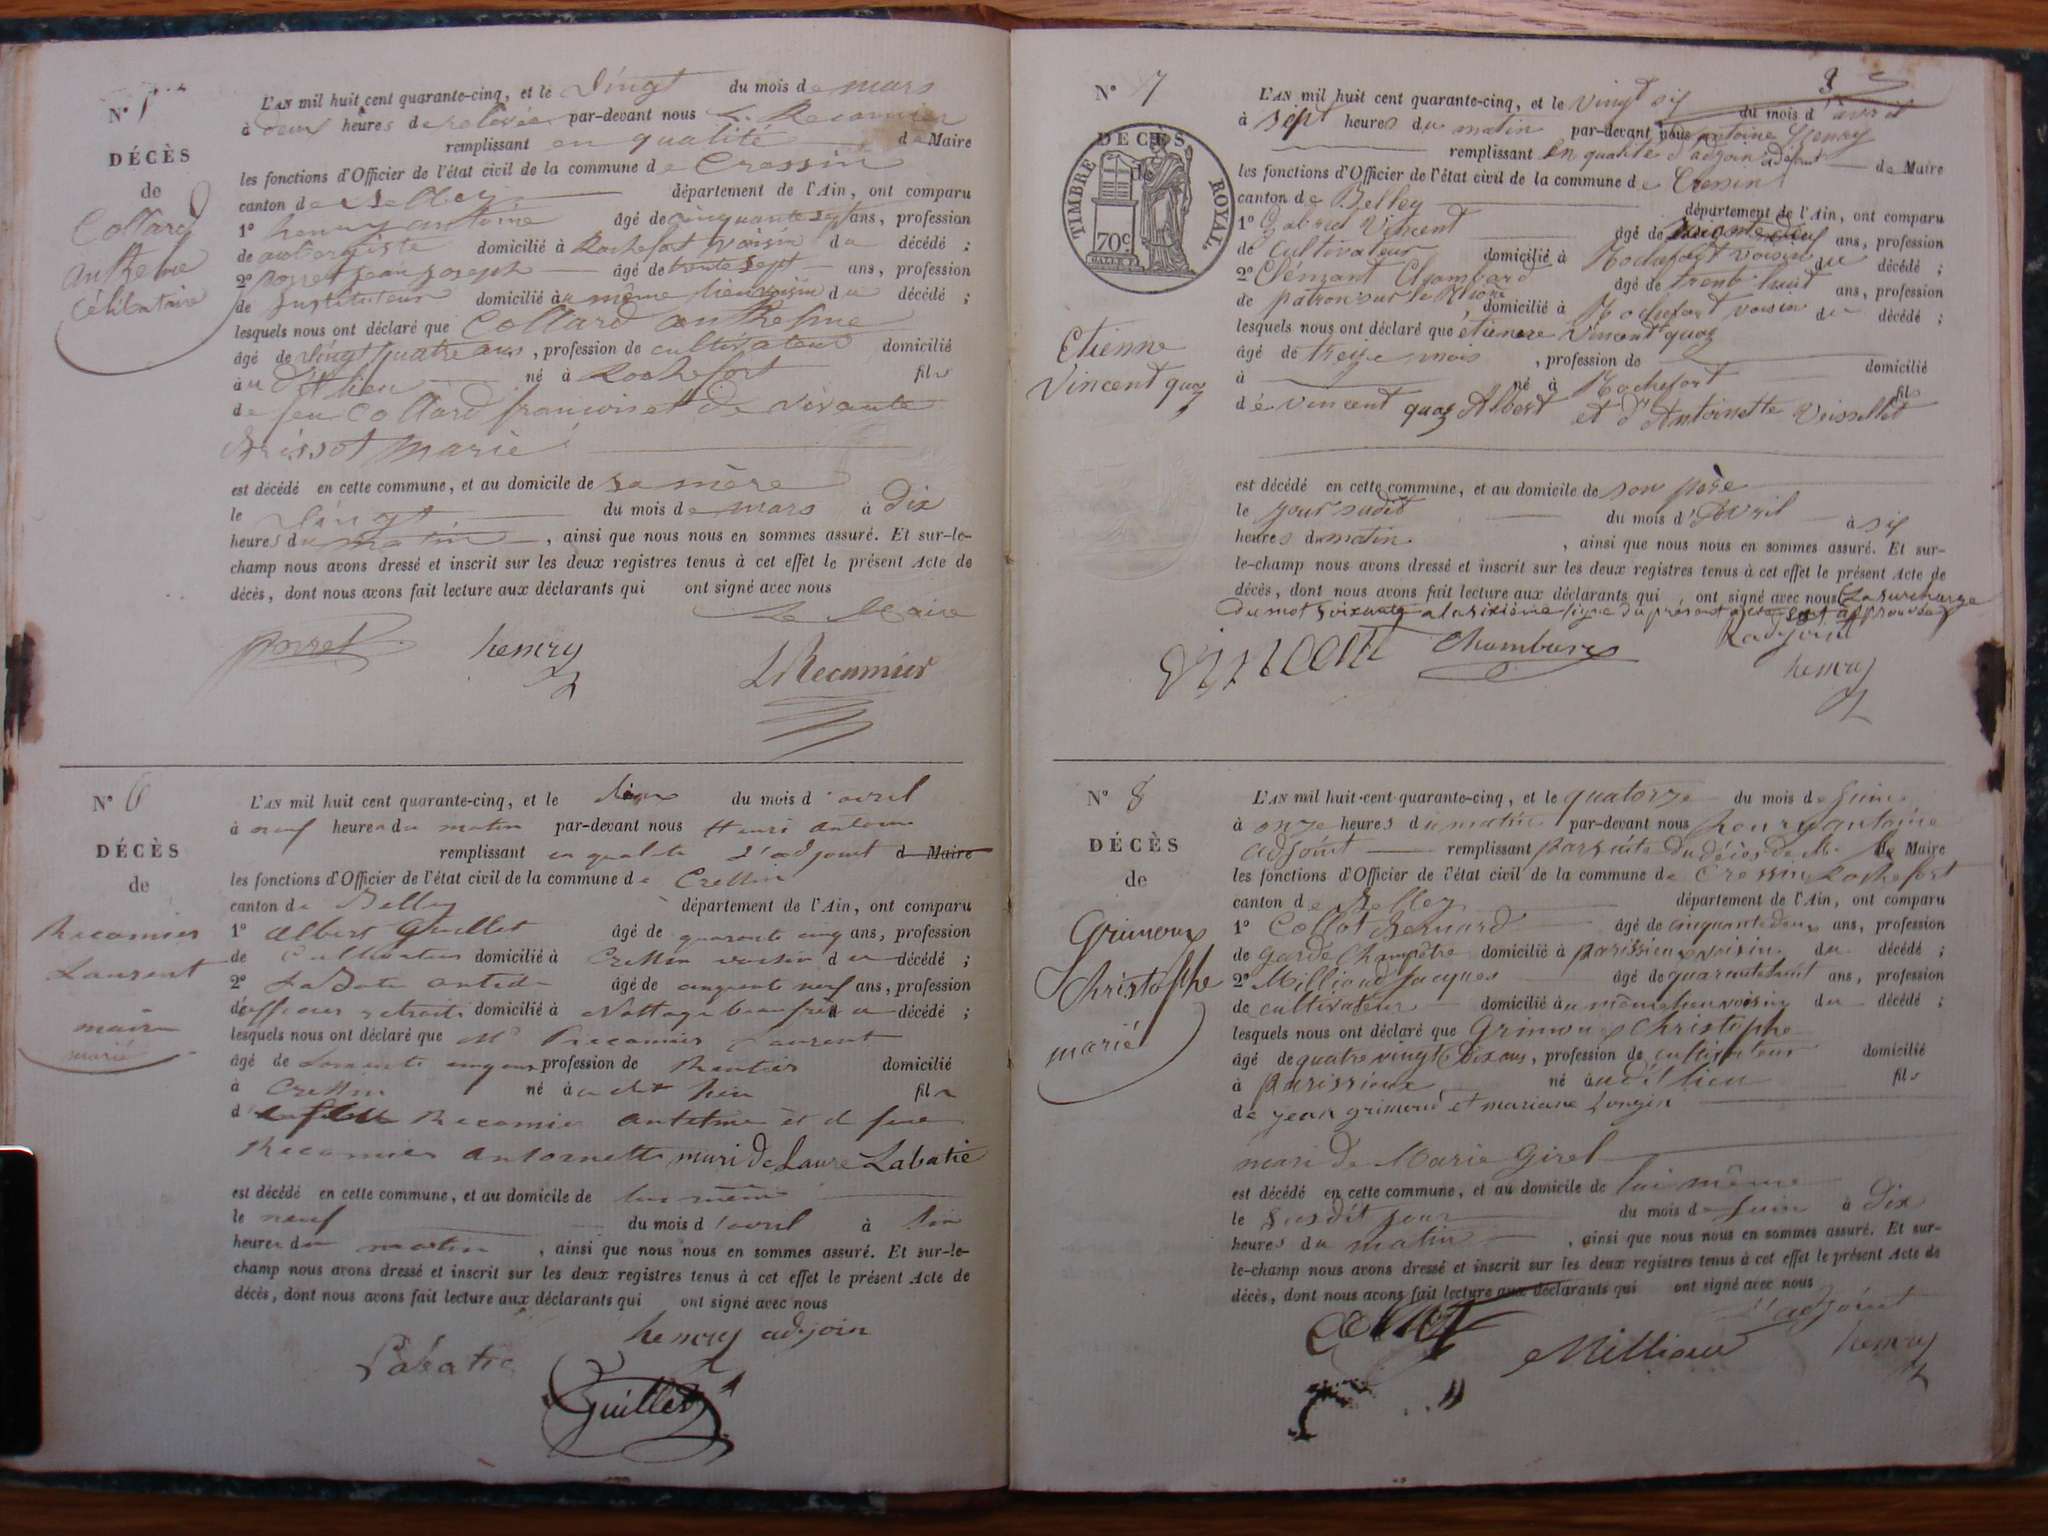 N°
DÉCÈS
de
Collard
anthelme
Célibataire
L'AN mil huit cent quarante-cinq, et le vingt du mois de mars
à deux heures de relevée par-devant nous L. Recamier
remplissant en qualité de Maire
les fonctions d'Officier de l'état civil de la commune de Cressin
canton de Belley département de l'Ain, ont comparu
1° henry antoine âgé de cinquante sept ans, profession
de aubergiste domicilié à Rochefort voisin du décédé ;
2° porret jean joseph âgé de trente sept ans, profession
de instituteur domicilié au même lieu voisin du décédé ;
lesquels nous ont déclaré que Collard anthelme
âgé de vingt quatre ans, profession de cultivateur domicilié
au dit lieu né à Rochefort fils
de feu Collard françois et de vivante
Brissot marie
est décédé en cette commune, et au domicile de sa mère
le vingt du mois de mars à dix
heures du matin, ainsi que nous nous en sommes assuré. Et sur-le-
champ nous avons dressé et inscrit sur les deux registres tenus à cet effet le présent Acte de
décès, dont nous avons fait lecture aux déclarants qui ont signé avec nous
Le Maire
porret henry L Recamier
N° 6
DÉCÈS
de
Recamier
Laurent
maire
marié
L'AN mil huit cent quarante-cinq, et le du mois d'avril
à neuf heures du matin par-devant nous Henri Antoine
remplissant en qualité d'adjoint d Maire
les fonctions d'Officier de l'état civil de la commune de Cressin
canton de Belley département de l'Ain, ont comparu
1° Albert Guillet âgé de quarante cinq ans, profession
de Cultivateur domicilié à Cressin voisin du décédé ;
2° Labatie âgé de cinquante neuf ans, profession
d'officier retraité domicilié à Nattage beau frère du décédé ;
lesquels nous ont déclaré que Mr Recamier Laurent
âgé de soixante cinq ans profession de Rentier domicilié
à Cressin né au dit lieu fils
d Recamier Antelme et d feue
Recamier Antoinette mari de Laure Labatie
est décédé en cette commune, et au domicile de lui même
le neuf du mois d'avril à
heures du matin, ainsi que nous nous en sommes assuré. Et sur-le-
champ nous avons dressé et inscrit sur les deux registres tenus à cet effet le présent Acte de
décès, dont nous avons fait lecture aux déclarants qui ont signé avec nous
henry adjoin
Labatie
Guillet
N° 7
DÉCÈS
TIMBRE ROYAL
70c
Etienne
Vincent quoz
L'AN mil huit cent quarante-cinq, et le vingt six du mois d'avril
à sept heures du matin par-devant nous antoine henry
remplissant en qualité d'adjoint à défaut de Maire
les fonctions d'Officier de l'état civil de la commune de Cressin
canton de Belley département de l'Ain, ont comparu
1° Vincent âgé de ans, profession
de cultivateur domicilié à Rochefort voisin du décédé ;
2° Clémzant Chambard âgé de trente huit ans, profession
de patron sur le Rhône, domicilié à Rochefort voisin du décédé ;
lesquels nous ont déclaré que etienne vincent quoz
âgé de treize mois, profession de domicilié
à né à Rochefort fils
de vincent quoz Albert et d'Antoinette Veissellet
est décédé en cette commune, et au domicile de son père
le jour sudit du mois d'Avril à six
heures du matin, ainsi que nous nous en sommes assuré. Et sur-
le-champ nous avons dressé et inscrit sur les deux registres tenus à cet effet le présent Acte de
décès, dont nous avons fait lecture aux déclarants qui ont signé avec nous La surcharge
du mot soixante a la sixième ligne du présent acte est approuvée
L'adjoint
Vincent Chambard henry
N° 8
DÉCÈS
de
Grimoux
Christophe
marié
L'AN mil huit-cent quarante-cinq, et le quatorze du mois de Juin
à onze heures du matin par-devant nous henry antoine
adjoint remplissant par suite du décès de M. le Maire
les fonctions d'Officier de l'état civil de la commune de Cressin Rochefort
canton de Belley département de l'Ain, ont comparu
1° Collot Bernard âgé de cinquante deux ans, profession
de garde Champêtre domicilié à parissieux voisin du décédé ;
2° Milliand Jacques âgé de quarante huit ans, profession
de cultivateur domicilié au même lieu voisin du décédé ;
lesquels nous ont déclaré que Grimoux Christophe
âgé de quatre vingt dix ans, profession de cultivateur domicilié
à parissieux né au dit lieu fils
de jean grimoud et mariane Longin
mari de Marie Girel
est décédé en cette commune, et au domicile de lui même
le susdit jour du mois de Juin à Dix
heures du matin, ainsi que nous nous en sommes assuré. Et sur-
le-champ nous avons dressé et inscrit sur les deux registres tenus à cet effet le présent Acte de
décès, dont nous avons fait lecture aux déclarants qui ont signé avec nous
l'adjoint
Collot Milliand henry